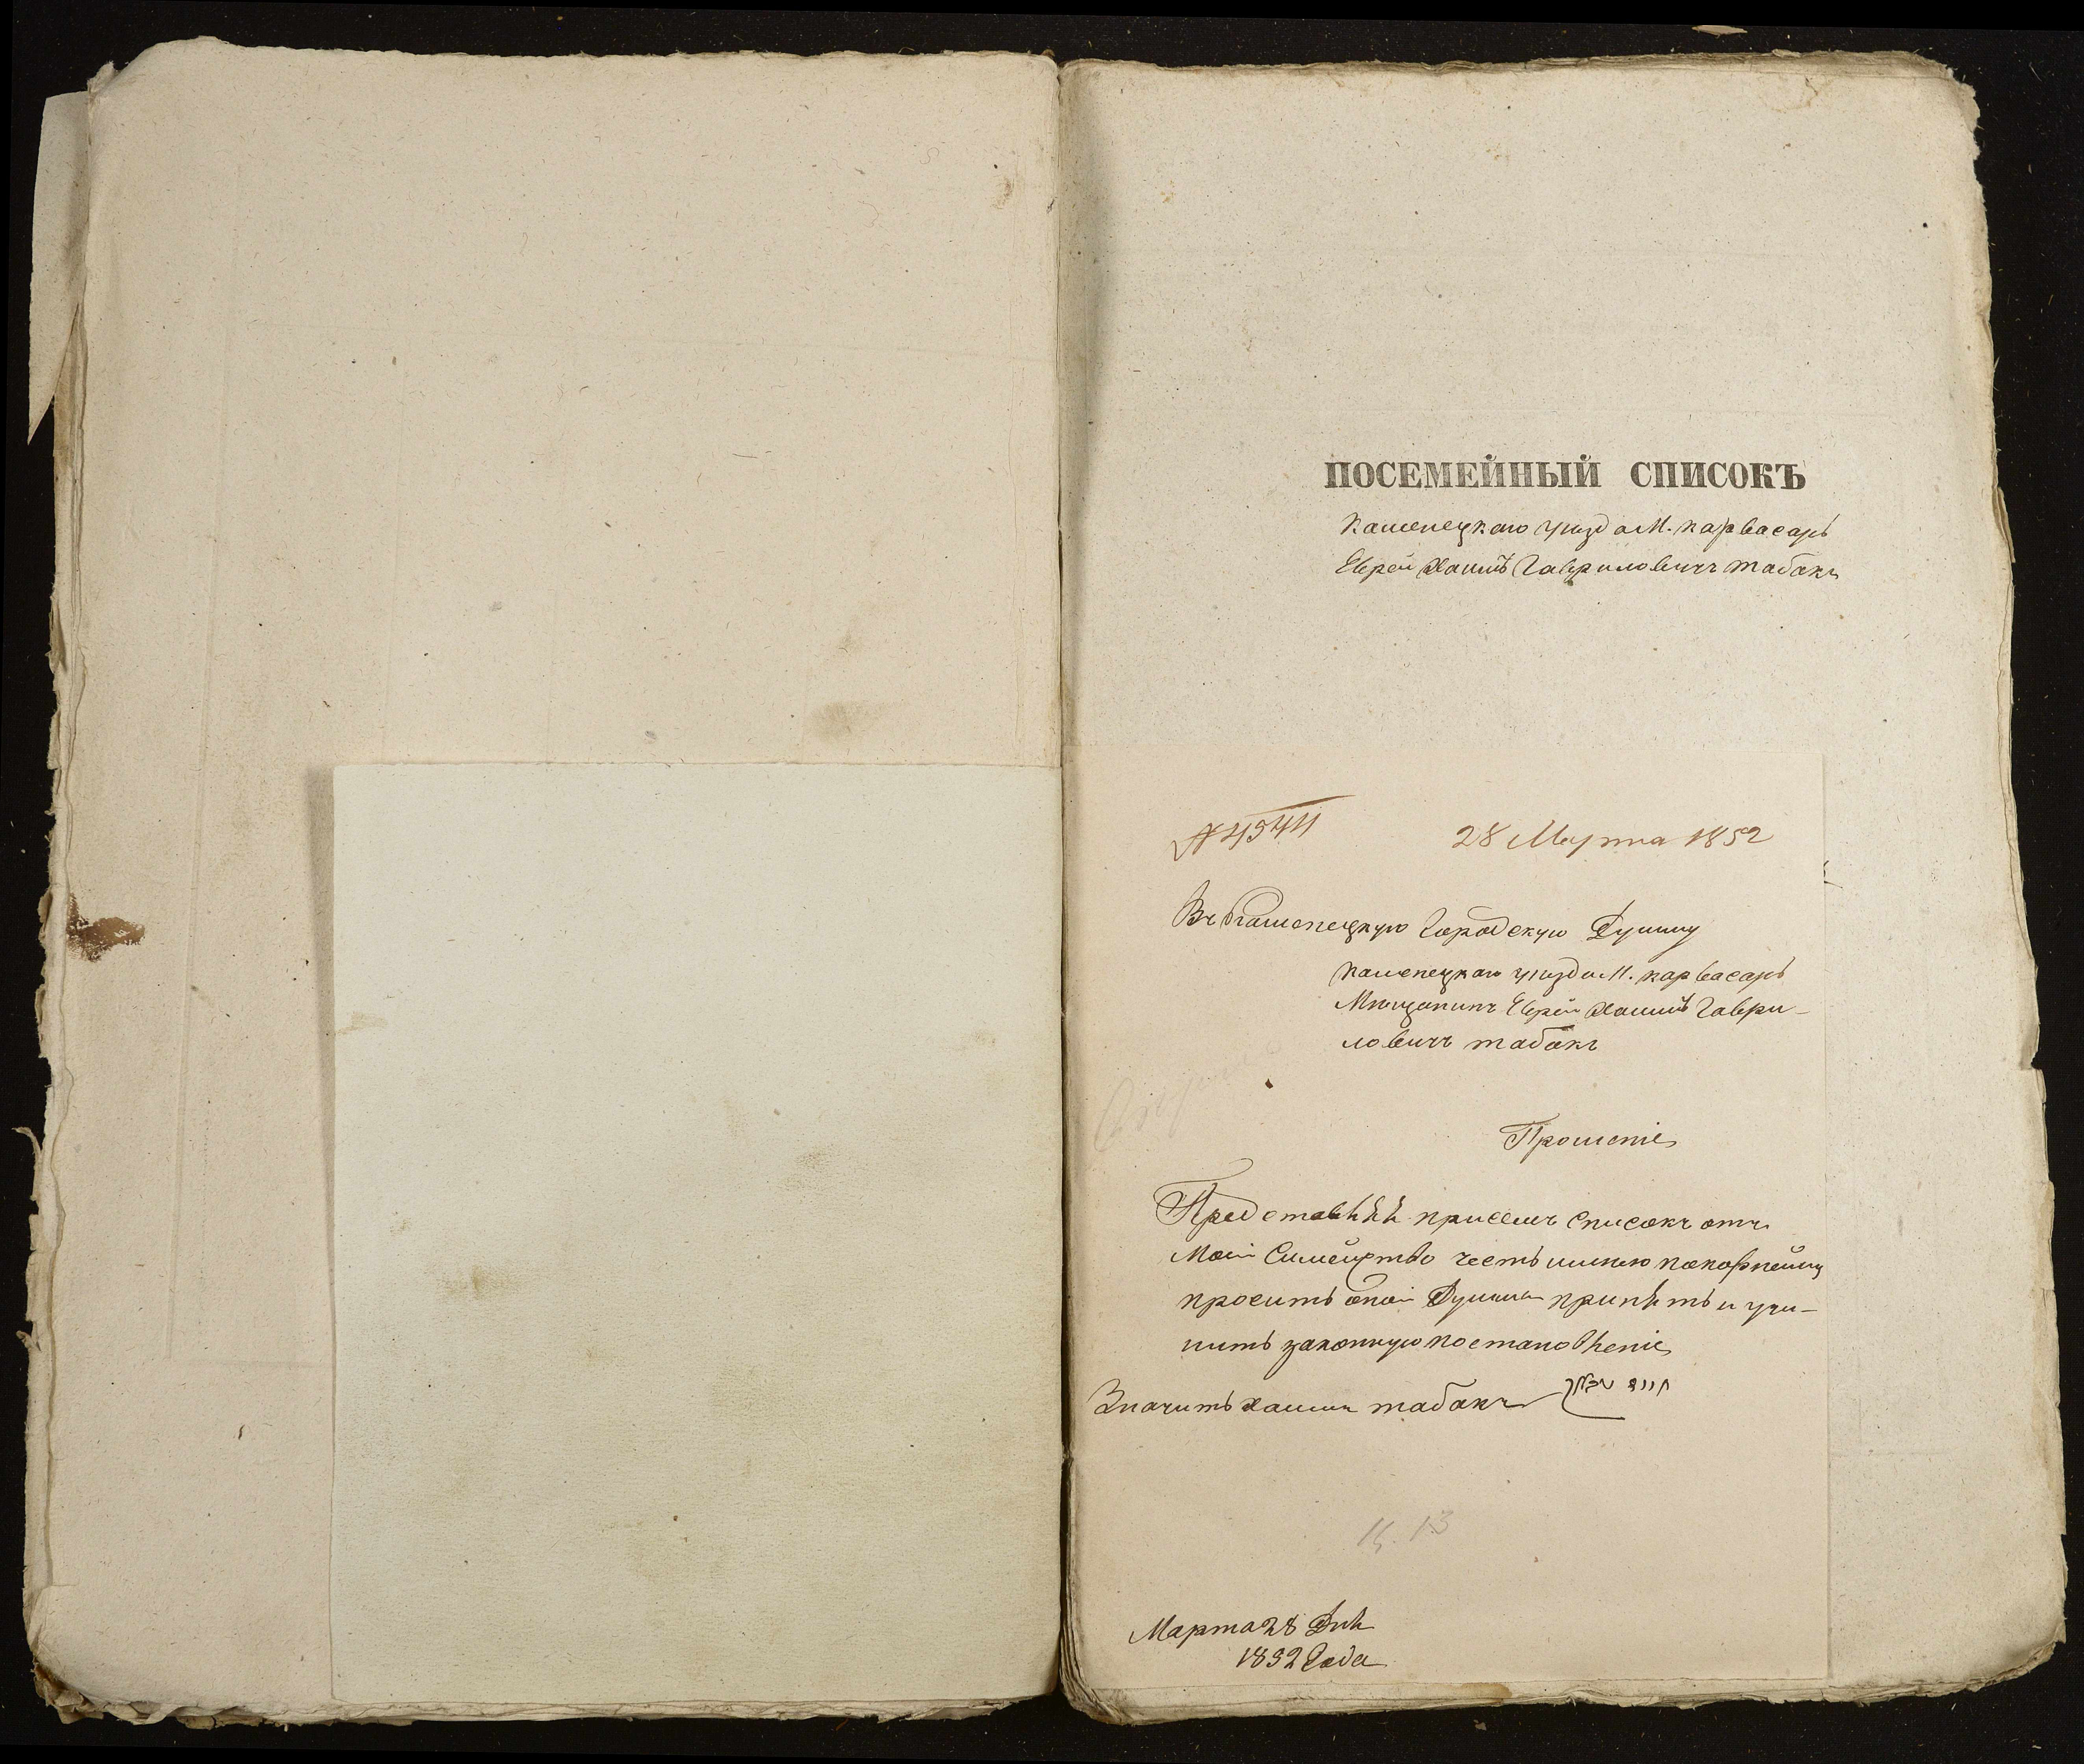 ПОСЕМЕЙНЫЙ СПИСОКЪ
Каменецкаго уезда М. карвасаръ
Еврей Хаимъ Гавриловичъ табакъ
№ 4544
28 Марта 1852
Въ Каменецкую Городскую Думму
Каменецкаго уезда М. карвасаръ
Мещанинъ Еврей Хаимъ Гаври-
ловичъ табакъ
Прошеніе
Представляя присемъ списокъ отъ
Моей Симейство честь имею покорнейшу
просить оной Думма принять и учи-
нить законную постановленіе
Значитъ хаимъ табакъ חיים
Марта 28 Дня
1852 Года